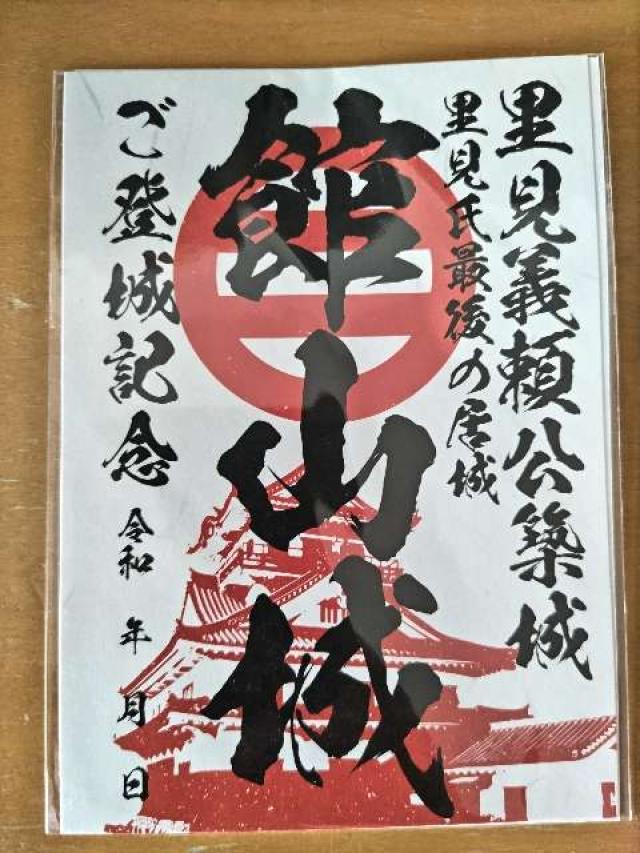 里見義頼公築城
里見氏最後の居城
館山城
ご登城記念
令和 年 月 日